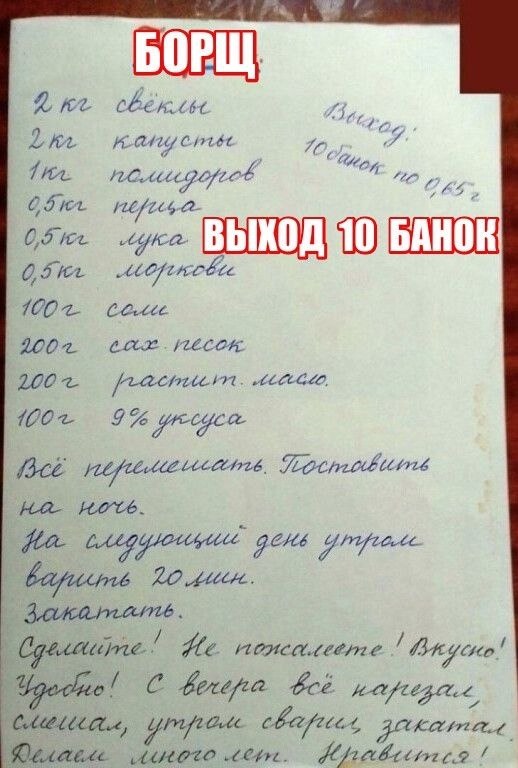 БОРЩ
2 кг свёклы
2 кг капусты
1 кг помидоров
0,5 кг перца
0,5 кг лука
0,5 кг моркови
100 г соли
200 г сах. песок
200 г растит. масло.
100 г 9% уксуса
Выход:
10 банок по 0,65 г
ВЫХОД 10 БАНОК
Всё перемешать. Поставить
на ночь.
На следующий день утром
варить 20 мин.
Закатать.
Сделайте! Не пожалеете! Вкусно!
Удобно! С вечера всё нарезал,
смешал, утром сварил, закатал.
Делаем много лет. Нравится!